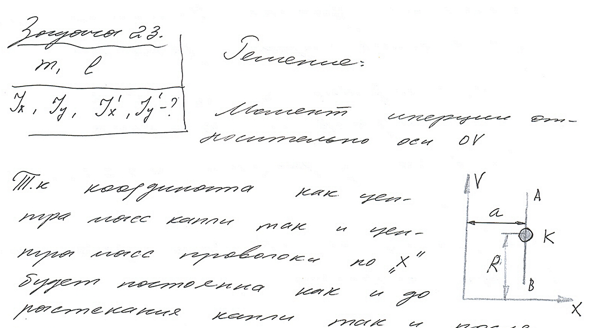 Задача 23.
m, l
Jx, Jy, Jx', Jy' - ?
Решение:
Момент инерции от-
носительно оси OV
Т.к координата как цен-
тра масс капли так и цен-
тра масс проволоки по "X"
будет постоянна как и до
растекания капли так и после
V
A
a
K
R
B
X